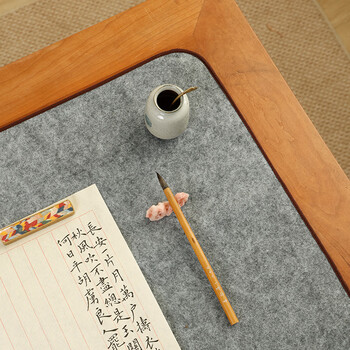 長安一片月萬户擣衣
秋風吹不盡總是玉關
何日平胡虜良人罷